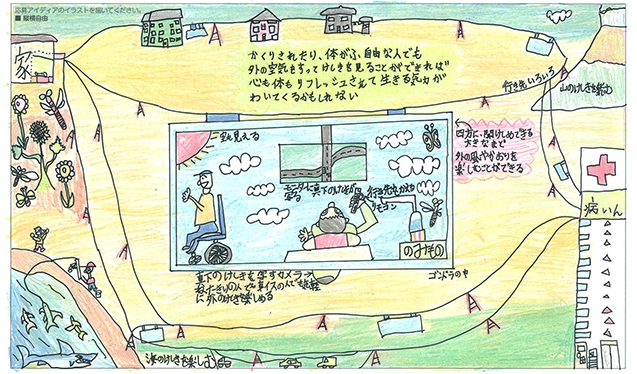 応募アイディアのイラストを描いてください。
■ 縦横自由
かくりされたり、体がふ自由な人でも
外の空気をすってけしきを見ることができれば
心も体もリフレッシュされて生きる気力が
わいてくるかもしれない
家
行き先いろいろ
山のけしきを楽しむ
空も見える
四方に開けしめできる
大きなまど
外の風やかおりを
楽しむことができる
モニターに真下の
行き先をかえる
リモコン
のみもの
病いん
真下のけしきを写すカメラ
ねたきりの人でも車イスの人でも
に外のけしきを楽しめる
ゴンドラの中
海のけしきを楽しむ